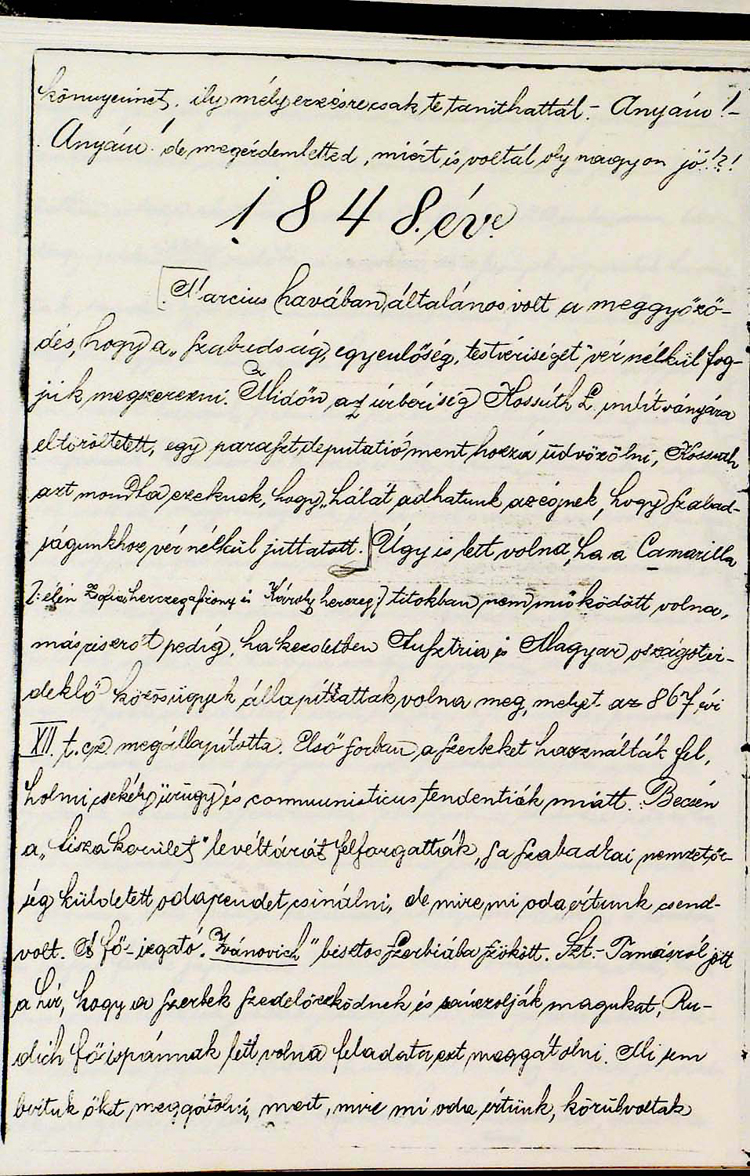 könnyeimet, ily mély érzésre csak te tanithattál - Anyám! -
Anyám! de megérdemletted, miért is voltál oly nagyon jó!?!
1848. év.
[Március havában általános volt a meggyőző-
dés, hogy a „szabadság, egyenlőség, testvériséget" vér nélkül fog-
juk megszerezni. Midőn az úrbériség Kossuth L. inditványára
eltöröltetett, egy paraszt deputatió ment hozzá üdvözölni, Kossuth
azt mondta ezeknek, hogy „hálát adhatunk az égnek, hogy szabad-
ságunkhoz vér nélkül juttatott.] Úgy is lett volna, ha a Camarilla
/: élén Zsófia herczegasszony és Károly herczeg :/ titokban nem működött volna,
másrészről pedig, ha kezdetben Ausztria és Magyar országot ér-
deklő közösügyek állapíttattak volna meg, melyet az 867 évi
XII. t. cz. megállapitotta. Első sorban a szerbeket használták fel,
holmi csekély ürügy és communisticus tendentiák miatt. Becsén
a „tisza kerület" levéltárát felforgatták, s a szabadkai nemzetőr-
ség küldetett oda rendet csinálni, de mire mi oda értünk csend
volt. A fő-izgató „Ivánovich" biztos Szerbiába szökött. Szt.-Tamásról jött
a hír, hogy a szerbek szedelőzködnek és sánczolják magukat, Ru-
dich főispánnak lett volna feladata ezt meggátolni. Mi sem
birtuk őket meggátolni, mert, mire mi oda értünk, körül voltak